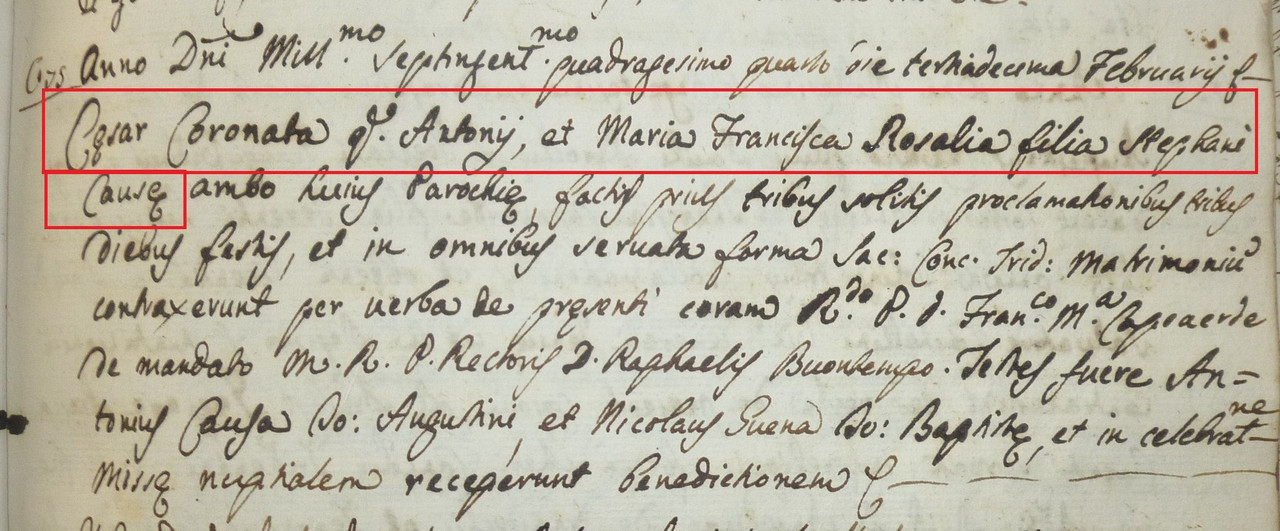 675 Anno Dni Mill.mo septingent.mo quadragesimo quarto die tertiadecima Februarij
Cęsar Coronata q. Antonij, et Maria Francisca Rosalia filia Stephani
Causę ambo huius Parochię, factis prius tribus solitis proclamationibus tribus
diebus festis, et in omnibus seruata forma Sac: Conc. Trid: Matrimoniū
contraxerunt per uerba de pręsenti coram R.do P. d. Fran.co M.a Capoaerde
de mandato M. R. P. Rectoris D. Raphaelis Buontempo. Testes fuere An=
tonius Causa Do: Augustini, et Nicolaus Guena Do: Baptistę, et in celebrat.ne
Missę nuptialem receperunt benedictionem